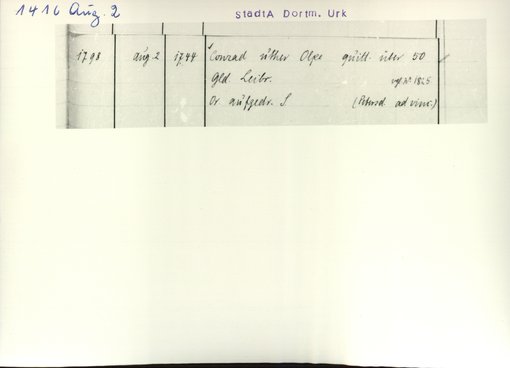 1416 Aug. 2
StadtA Dortm. Urk
1798 aug 2 1744 Conrad uther Olpe quitt. über 50
Gld Leibr. vgl. N. 1825
Or. aufgedr. S (Petersd. ad vinc.)